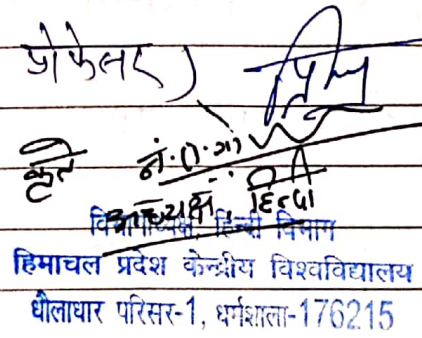 प्रोफेसर)
कृते
अध्यक्ष: हिन्दी
विभागाध्यक्ष, हिन्दी विभाग
हिमाचल प्रदेश केन्द्रीय विश्वविद्यालय
धौलाधार परिसर-1, धर्मशाला-176215